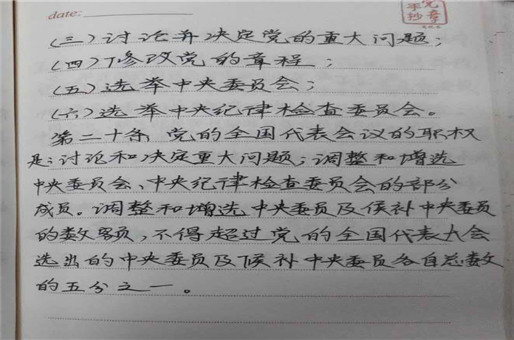 date:
手抄
党章
(三)讨论并决定党的重大问题;
(四)修改党的章程;
(五)选举中央委员会;
(六)选举中央纪律检查委员会。
第二十条 党的全国代表会议的职权
是:讨论和决定重大问题;调整和增选
中央委员会、中央纪律检查委员会的部分
成员。调整和增选中央委员及候补中央委员
的数额,不得超过党的全国代表大会
选出的中央委员及候补中央委员各自总数
的五分之一。